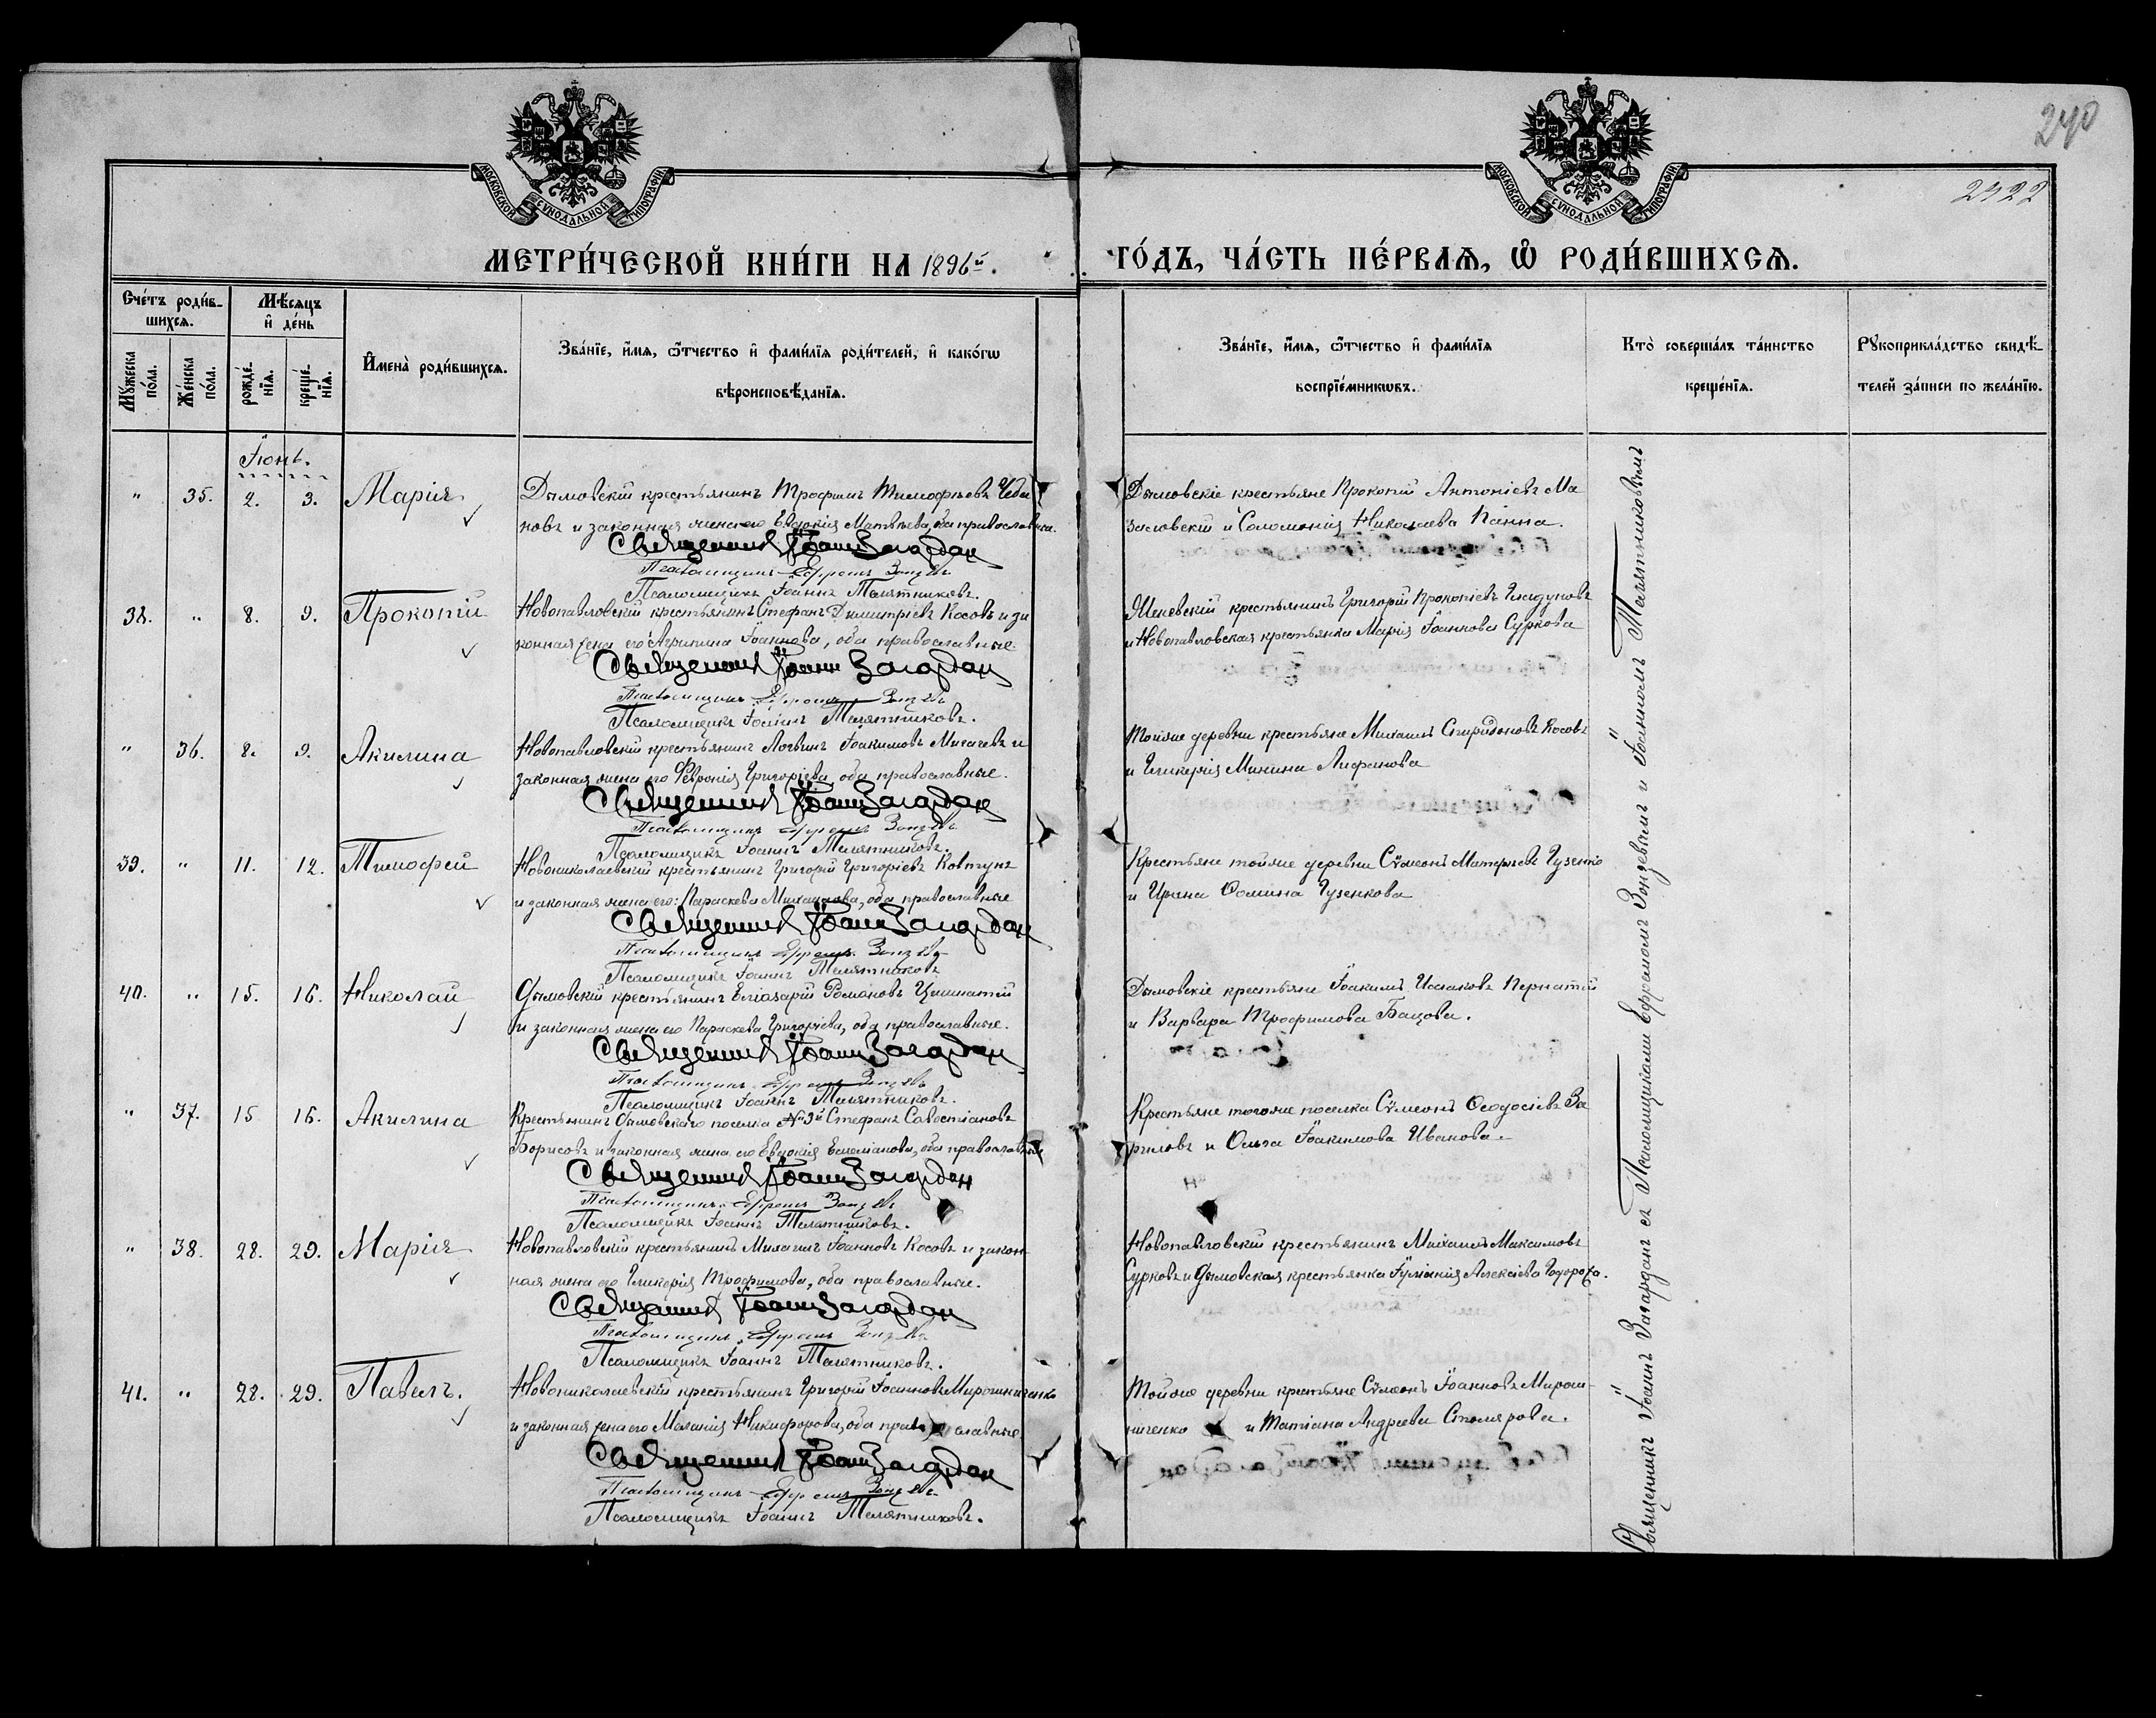 240
2422
МОСКОВСКОЙ СѴНОДАЛЬНОЙ ТИПОГРАФІИ
МОСКОВСКОЙ СѴНОДАЛЬНОЙ ТИПОГРАФІИ
МЕТРИ́ЧЕСКОЙ КНИ́ГИ НА 1896й. ГО́ДЪ, ЧА́СТЬ ПЕ́РВАѦ, Ѿ РОДИ́ВШИХСѦ.
Сче́тъ роди́в-
шихсѧ.
Мѣсяцъ
и де́нь
Мꙋжеска по́ла.
Же́нска по́ла.
рожде́нїѧ.
креще́нїѧ.
Имена̀ роди́вшихсѧ.
Зва́нїе, и́мѧ, ѻ҆́тчество и фами́лїѧ роди́телей, и како́гѡ
вѣроисповѣ́данїѧ.
Зва́нїе, и́мѧ, ѻ҆́тчество и фами́лїѧ
воспрїе́мникѡвъ.
Кто̀ соверша́лъ та́инство
креще́нїѧ.
Рꙋкоприкла́дство свидѣ́-
телей за́писи по жела́нїю.
Іюнь.
" 35. 2. 3. Марія
Дымовскій крестьянинъ Трофимъ Тимофѣевъ Чеба
новъ и законная жена его Евдокія Матвѣева, оба православны.
Священникъ Іоаннъ Загордан
Псаломщикъ Ефремъ
Псаломщикъ Іоаннъ Телятниковъ.
Дымовскіе крестьяне Прокопій Антоніевъ Ма
заловскій и Соломонія Николаева Панна.
38. " 8. 9. Прокопій
Новопавловскій крестьянинъ Стефанъ Димитріевъ Косовъ и за
конная жена его Агрипина Іоаннова, оба православные.
Священникъ Іоаннъ Загордан
Псаломщикъ Ефремъ
Псаломщикъ Іоаннъ Телятниковъ.
крестьянинъ Григорій Прокопіевъ
и Новопавловская крестьянка Марія Іоаннова Суркова
" 36. 8. 9. Акилина
Новопавловскій крестьянинъ Логвинъ Іоакимовъ и
законная жена его Февронія Григоріева, оба православные.
Священникъ Іоаннъ Загордан
Псаломщикъ Ефремъ
Псаломщикъ Іоаннъ Телятниковъ.
Тойже деревни крестьяне Михаилъ Спиридоновъ Косовъ
и Гликерія Минина
39. " 11. 12. Тимофей
Новониколаевскій крестьянинъ Григорій Григоріевъ Ковтунъ
и законная жена его: Параскева Михаилова, оба православные
Священникъ Іоаннъ Загордан
Псаломщикъ Ефремъ
Псаломщикъ Іоаннъ Телятниковъ
Крестьяне тойже деревни Сѵмеонъ Гузенко
и Ирина Ѳомина Гузенкова
40. " 15. 16. Николай
Дымовскій крестьянинъ Еліазарій Романовъ
и законная жена его Параскева Григоріева, оба православные.
Священникъ Іоаннъ Загордан
Псаломщикъ Ефремъ
Псаломщикъ Іоаннъ Телятниковъ.
Дымовскіе крестьяне Іоакимъ Исааковъ Пернатій
и Варвара Трофимова Бацова.
" 37. 15 16. Акилина
Крестьянинъ Дымовскаго поселка № 3й Стефанъ Савостіановъ
Борисовъ и законная жена его Евдокія Емеліанова, оба православные
Священникъ Іоаннъ Загордан
Псаломщикъ Ефремъ
Псаломщикъ Іоаннъ Телятниковъ.
Крестьяне тогоже поселка Сѵмеонъ Ѳеодосіевъ За
риловъ и Ольга Іоакимова Иванова.
" 38. 28. 29. Марія
Новопавловскій крестьянинъ Михаилъ Іоанновъ Косовъ и закон
ная жена его Гликерія Трофимова, оба православные.
Священникъ Іоаннъ Загордан
Псаломщикъ Ефремъ
Псаломщикъ Іоаннъ Телятниковъ.
Новопавловскій крестьянинъ Михаилъ Максимовъ
Сурковъ и Дымовская крестьянка Іуліанія Алексіева
41. " 28. 29. Павелъ.
Новониколаевскій крестьянинъ Григорій Іоанновъ Мирошниченко
и законная жена его Меланія Никифорова, оба православные.
Священникъ Іоаннъ Загордан
Псаломщикъ Ефремъ
Псаломщикъ Іоаннъ Телятниковъ.
Тойже деревни крестьяне Сѵмеонъ Іоанновъ Мирош-
ниченко и Татіана Андреева Столярова.
Священникъ Іоаннъ Загорданъ съ Псаломщиками Ефремомъ и Іоанномъ Телятниковымъ